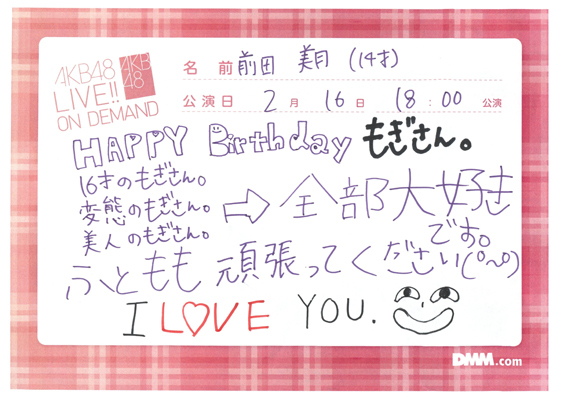 AKB48
LIVE!!
ON DEMAND
AKB
48
名 前 前田 美月 (14才)
公演日 2月 16日 18:00 公演
HAPPY Birthday もぎさん。
16才のもぎさん。
変態のもぎさん。
美人のもぎさん。
⇨ 全部大好き
です。
ふともも 頑張ってください(^o^)
I LOVE YOU.
DMM.com